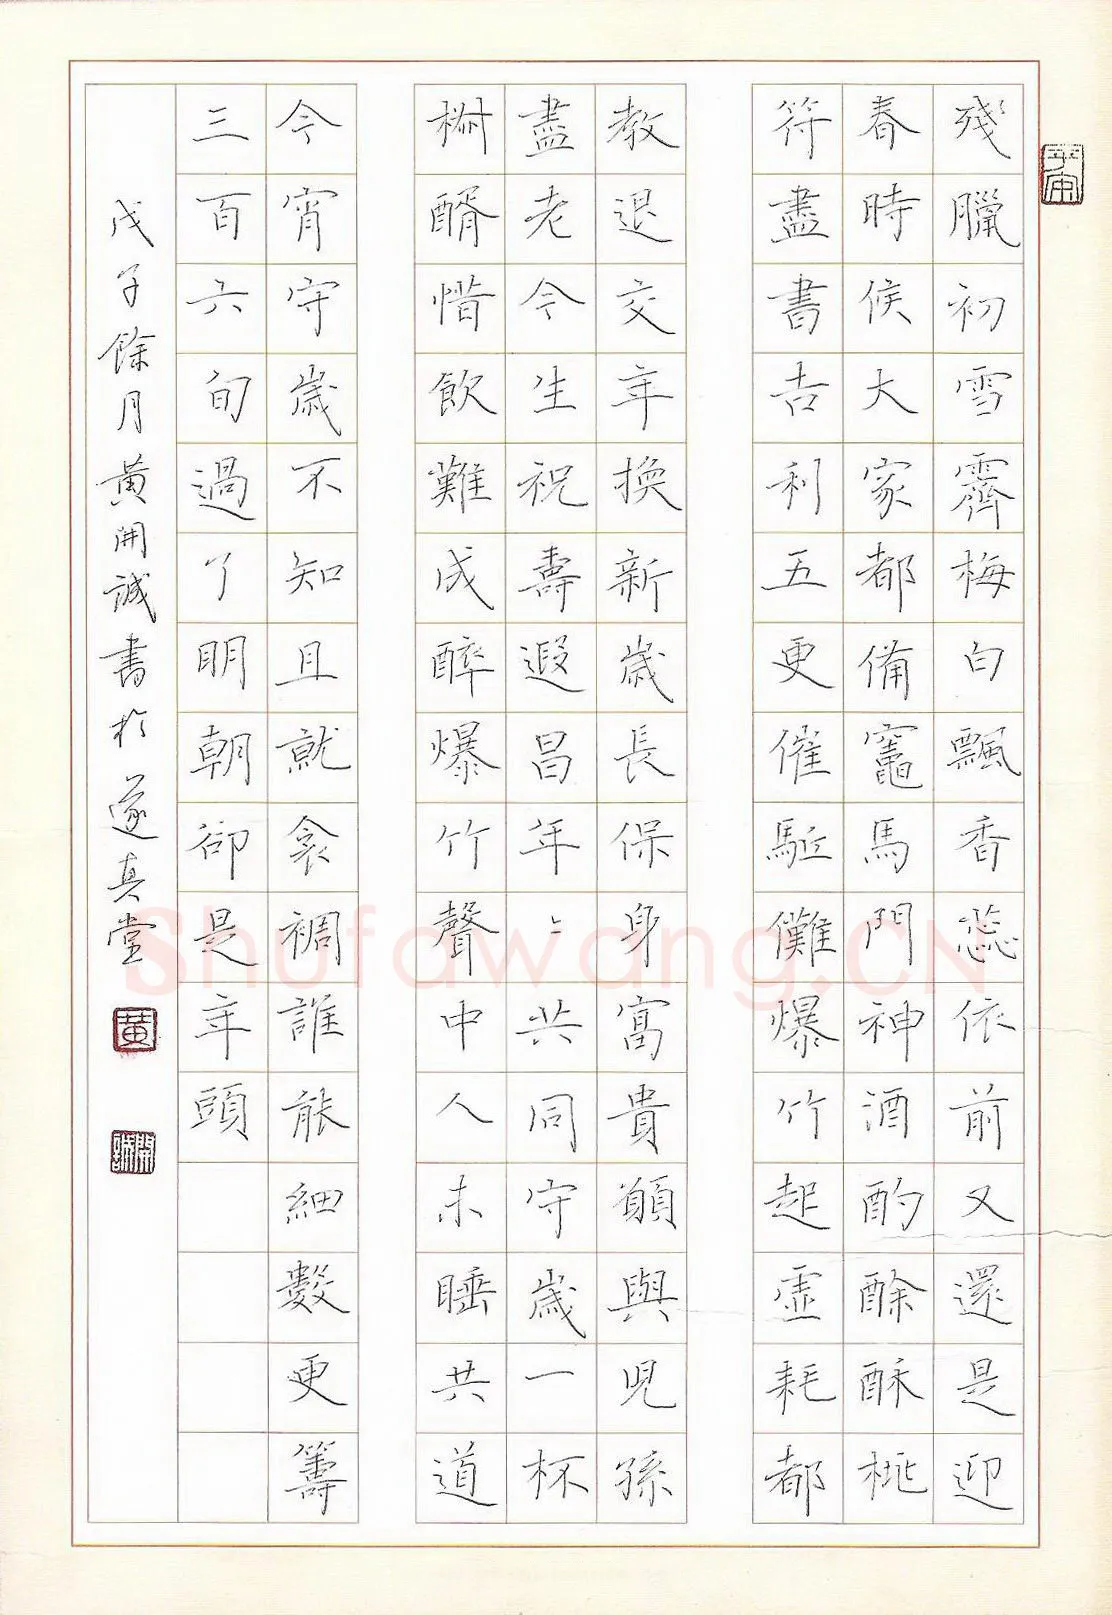 殘臘初雪霽梅白飄香蕊依前又還是迎
春時候大家都備竈馬門神酒酌酴酥桃
符盡書吉利五更催駈儺爆竹起虛耗都
教退交年換新歲長保身富貴願與兒孫
盡老今生祝壽遐昌年〻共同守歲一杯
椒醑惜飲難成醉爆竹聲中人未睡共道
今宵守歲不知且就衾裯誰能細數更籌
三百六旬過了明朝卻是年頭
戊子餘月黃開誠書於遂真堂
黃
開誠
Shufawang.CN